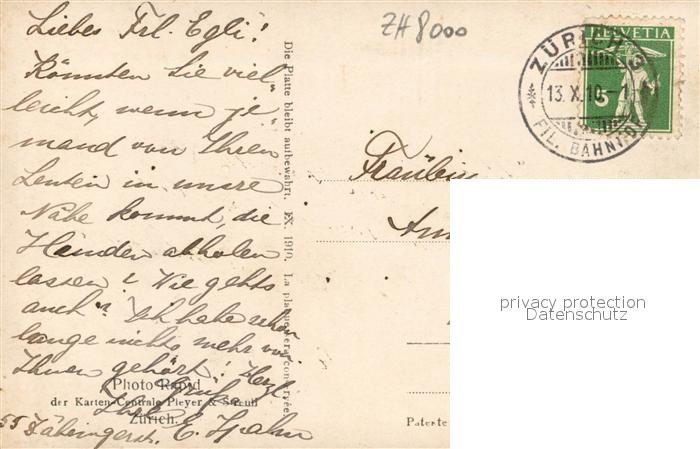 Liebes Frl. Egli!
Könnten Sie viel-
leicht, wenn je-
mand von Ihren
Leuten in unsre
Nähe kommt, die
Hauben abholen
lassen? Wie gehts
auch? Ich habe schon
lange nichts mehr von
Ihnen gehört! Herzl.
Grüße
Ihre
E. Hahn
55 Zähringerstr.
Die Platte bleibt aufbewahrt. EX. 1910. La plaque sera conservée.
Photo-Rapid
der Karten-Centrale Pleyer & Streuli
Zürich.
ZH 8000
ZÜRICH
13. X. 10.-1
FIL. BAHNHOF
HELVETIA
5
Fräulein
Patente
privacy protection
Datenschutz